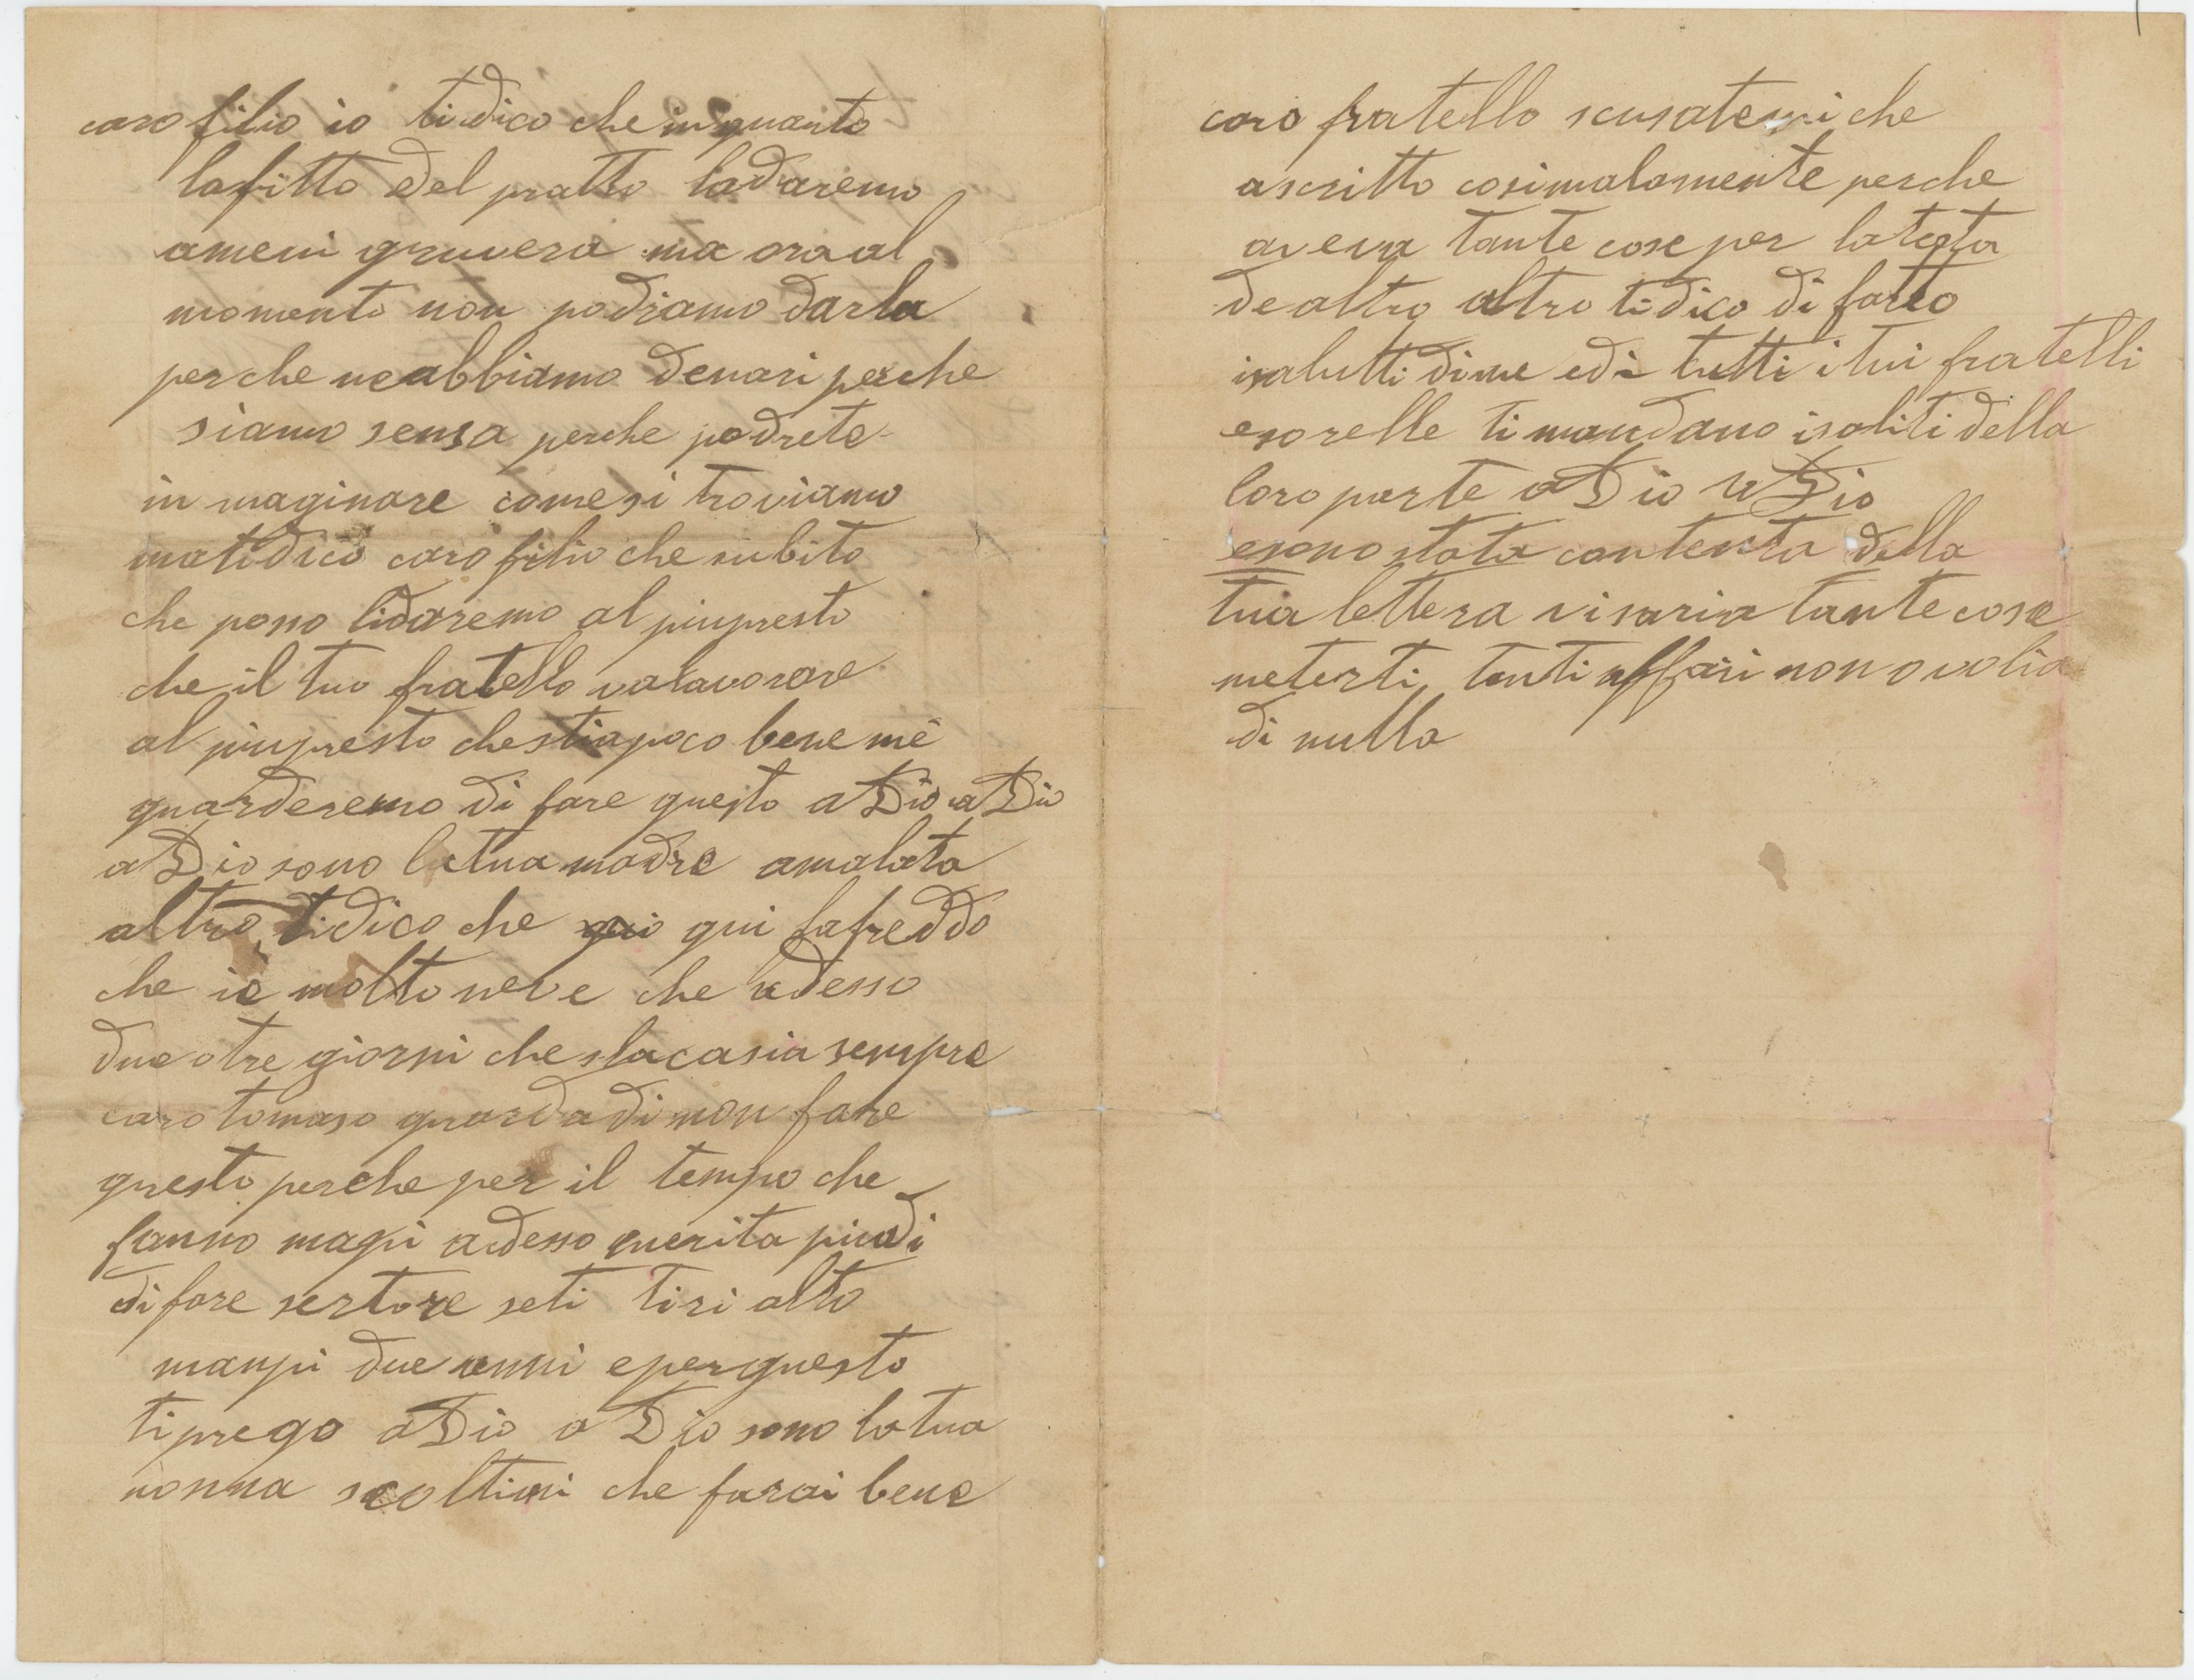 caro filio io ti dico che inquanto
lafitto del pratto ladaremo
ameni gruvera ma ora al
momento non podiamo darla
perche neabbiamo denari perche
siamo sensa perche podrete
in maginare come si troviamo
matidico caro filio che subito
che posso lidaremo al piupresto
che il tuo fratello valavorare
al piupresto chestia poco bene mè
guarderemo di fare questo a Dio a Dio
a Dio sono latua madre amalata
altro tidico che qui fafreddo
che iè molto neve che adesso
due otre giorni che slacasia sempre
caro tomaso guarda di non fare
questo perche per il tempo che
fanno magi adesso merita piudi
di fare sertore seti tiri alto
manpi due anni eperquesto
ti prego a Dio a Dio sono la tua
nonna scoltimi che farai bene
caro fratello scusatemi che
ascritto cosimalamente perche
aveva tante cose per latesta
de altro altro tidico di fatto
isalutti dime edi tutti i tui fratelli
esorelle ti mandano isaliti della
loro parte a Dio a Dio
esono stata contenta della
tua lettera visaria tante cose
meterti tanti affari non o volia
di nulla